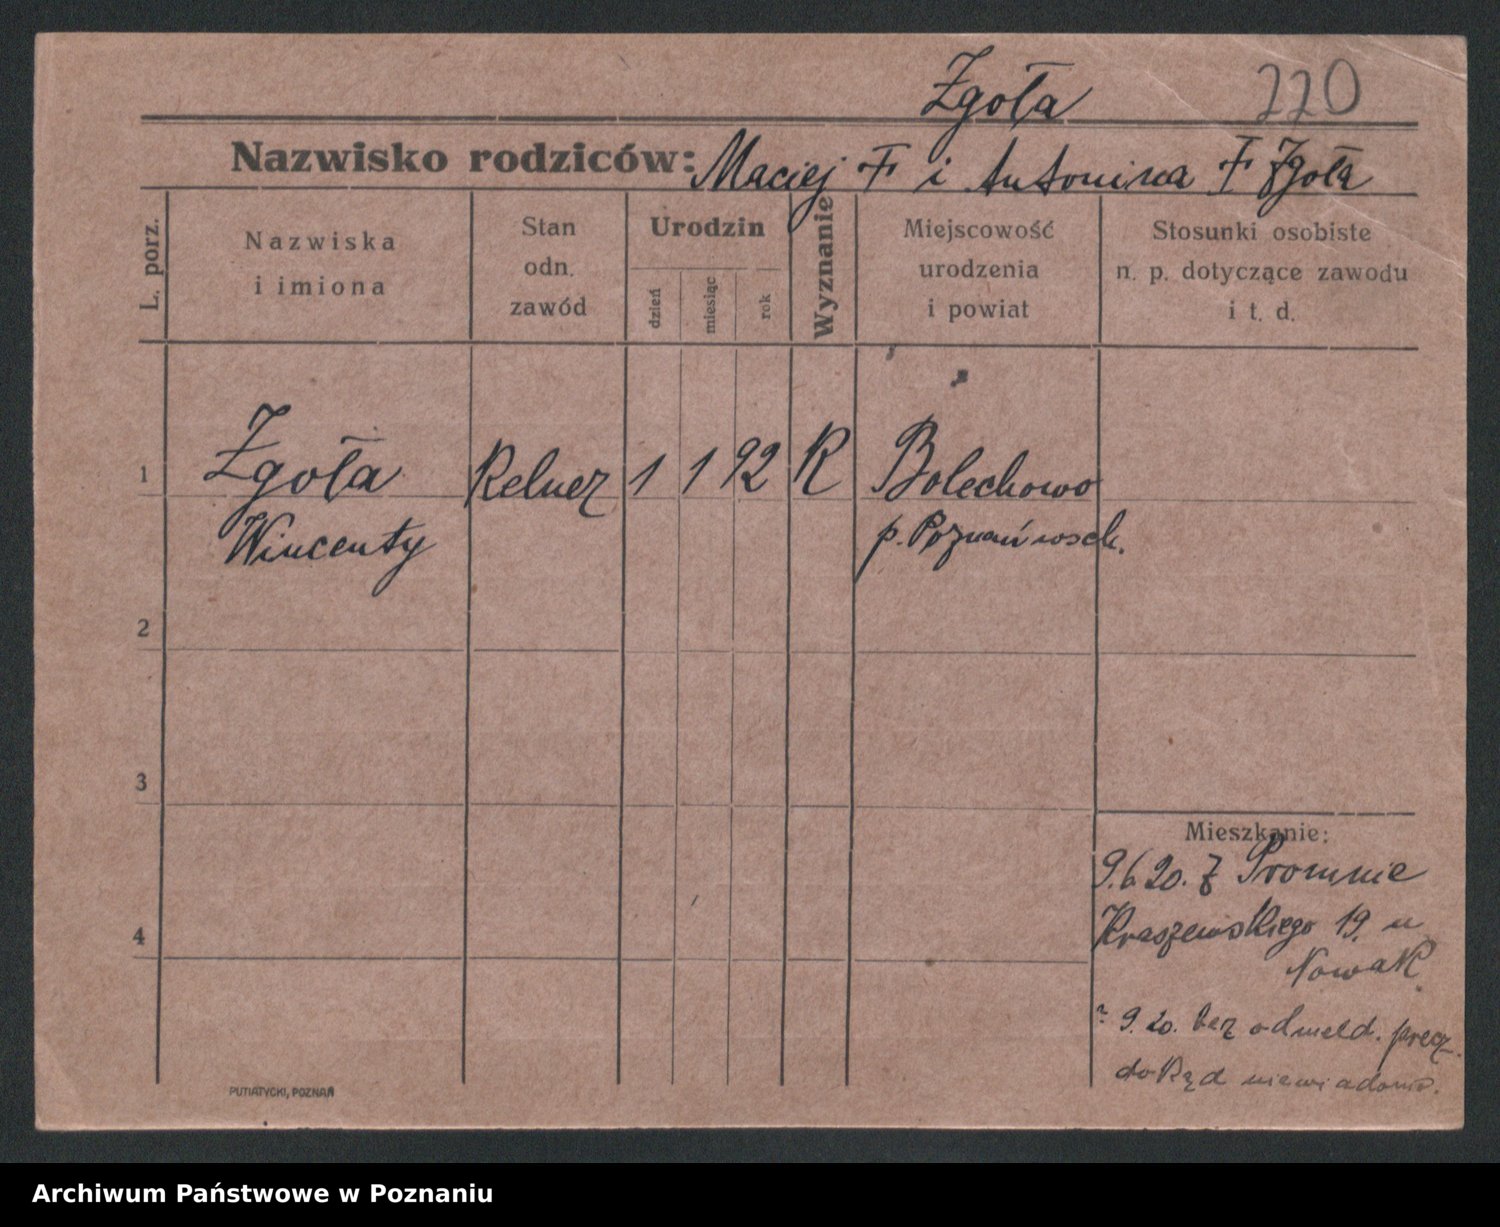 Zgoła 220
Nazwisko rodziców: Maciej † i Antonina † Zgoła
L. porz.
Nazwiska
i imiona
Stan
odn.
zawód
Urodzin
dzień
miesiąc
rok
Wyznanie
Miejscowość
urodzenia
i powiat
Stosunki osobiste
n. p. dotyczące zawodu
i t. d.
1 Zgoła Kelner 1 1 92 K Bolechowo
Wincenty p. Poznań wsch.
2
3
Mieszkanie:
9.6.20. z Promnie
Kraszewskiego 19. u
4
Nowak
9. 20. bez odmeld. precz.
dokąd niewiadomo.
PUTIATYCKI, POZNAŃ
Archiwum Państwowe w Poznaniu